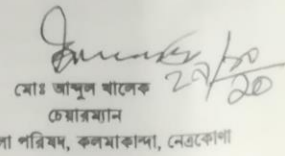 ২৭/১০/২০
মোঃ আব্দুল খালেক
চেয়ারম্যান
পরিষদ, কলমাকান্দা, নেত্রকোণা